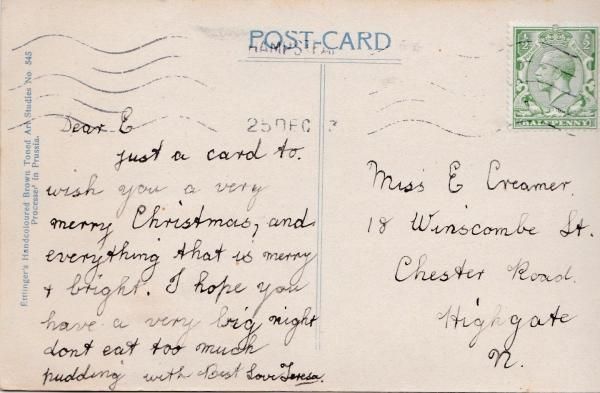 POST-CARD
HAMPSTEA
25 DEC
½ ½
HALFPENNY
Ettlinger's Handcoloured Brown Toned Art Studies No 545
Processed in Prussia.
Dear E
just a card to.
wish you a very
merry Christmas, and
everything that is merry
+ bright. I hope you
have a very big night
dont eat too much
pudding with Best Love Teresa.
Miss E Creamer.
18 Winscombe St.
Chester Road.
Highgate
N.